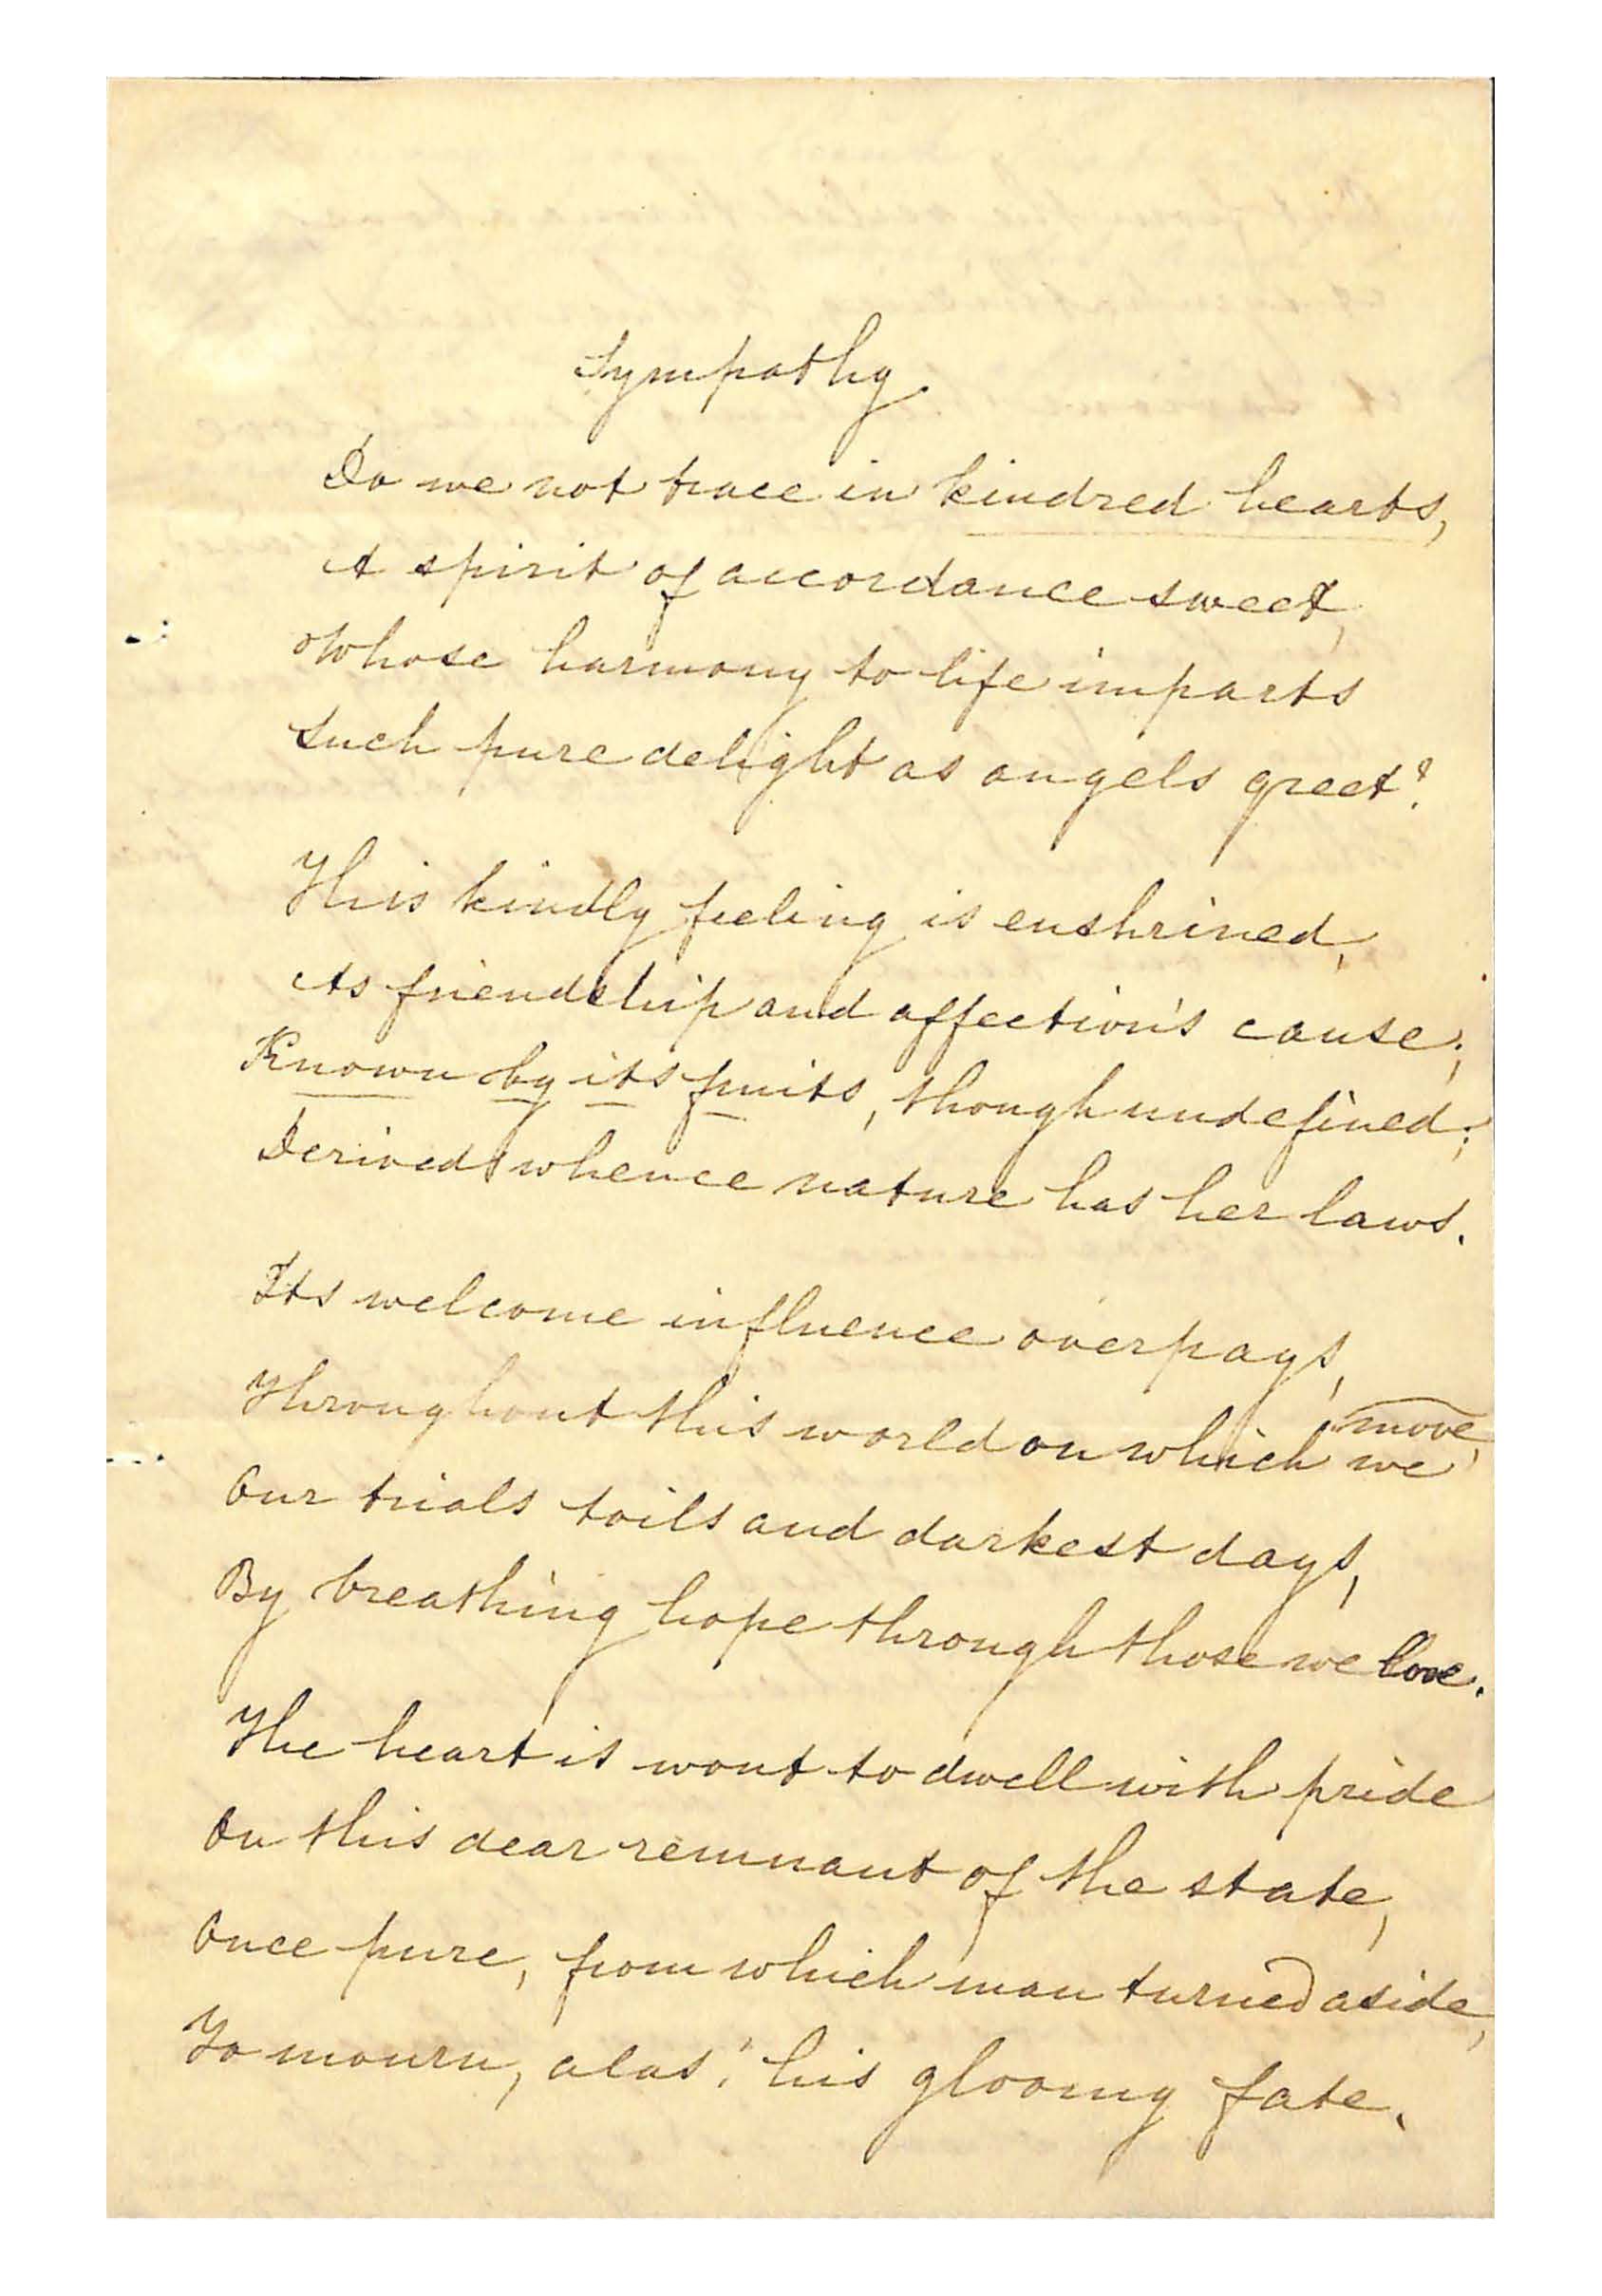 Sympathy.
Do we not trace in kindred hearts,
A spirit of accordance sweet,
Whose harmony to life imparts
Such pure delight as angels greet?
This kindly feeling is enshrined,
As friendship and affection's cause;
Known by its fruits, though undefined;
Derived whence nature has her laws.
Its welcome influence overpays,
Throughout this world on which we move,
Our trials toils and darkest days,
By breathing hope through those we love.
The heart is wont to dwell with pride
On this dear remnant of the state,
Once pure, from which man turned aside,
To mourn, alas! his gloomy fate.